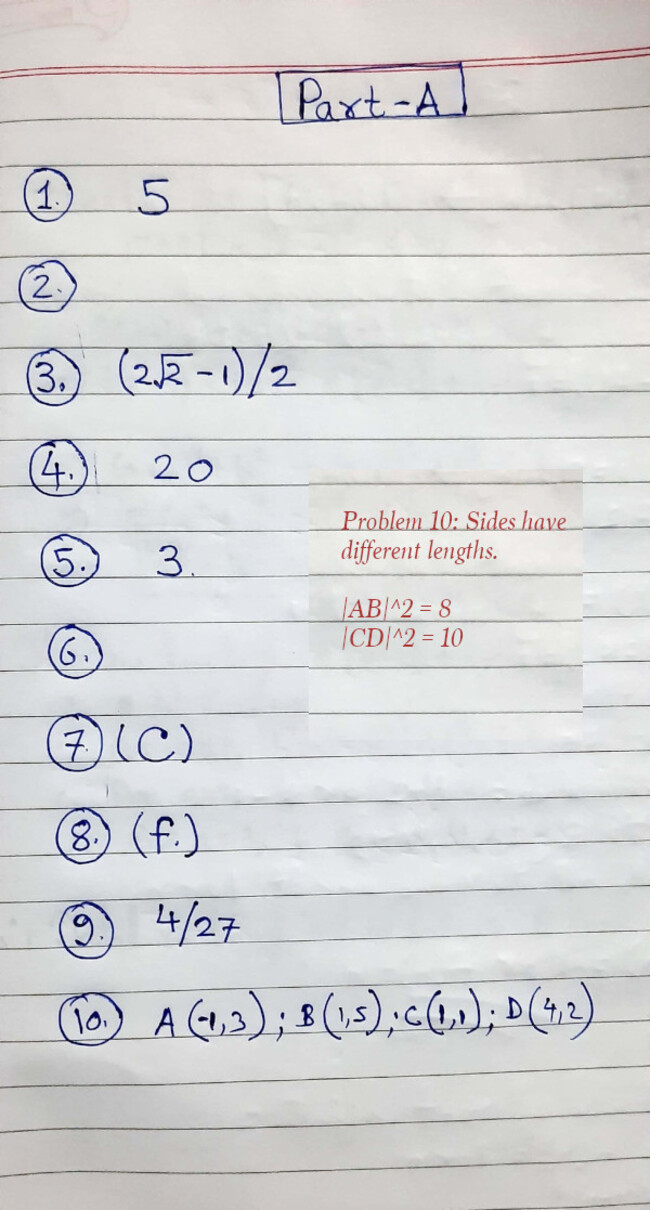 Part-A
1. 5
2.
3. (2√2-1)/2
4. 20
5. 3.
6.
7. (C)
8. (f.)
9. 4/27
10. A(-1,3); B(1,5); C(1,1); D(4,2)
Problem 10: Sides have
different lengths.
|AB|^2 = 8
|CD|^2 = 10